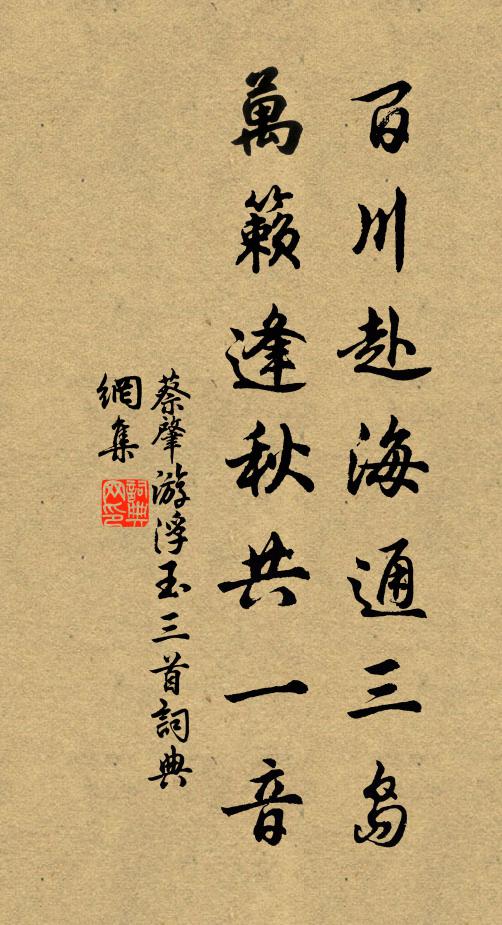 百川赴海通三島
萬籟逢秋共一音
蔡肇游浮玉三首詞典
網集
詞典網印